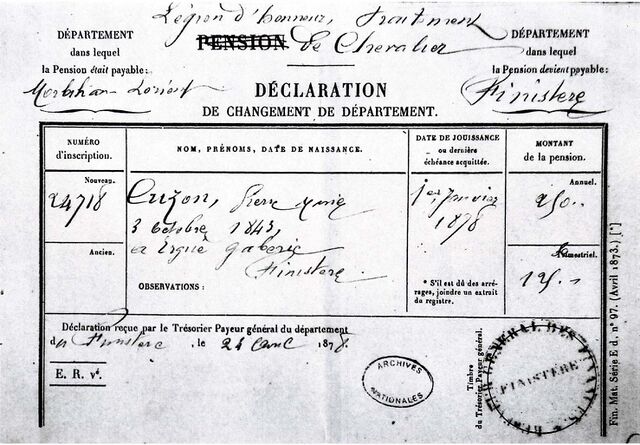 Légion d'honneur, Traitement
PENSION de Chevalier
DÉPARTEMENT
dans lequel
la Pension était payable:
Morbihan Lorient
DÉPARTEMENT
dans lequel
la Pension devient payable:
Finistère
DÉCLARATION
DE CHANGEMENT DE DÉPARTEMENT.
NUMÉRO
d'inscription.
NOM, PRÉNOMS, DATE DE NAISSANCE.
DATE DE JOUISSANCE
ou dernière
échéance acquittée.
MONTANT
de la pension.
Nouveau.
24718
Ancien.
Cuzon, Pierre Marie
3 octobre 1843,
à Ergué gaberic
Finistère
OBSERVATIONS:
1er Janvier
1878
* S'il est dû des arré-
rages, joindre un extrait
du registre.
Annuel.
250
trimestriel.
125
Déclaration reçue par le Trésorier Payeur général du département
du Finistère, le 24 avril 1878.
E. R. vé.
ARCHIVES
NATIONALES
Timbre
du Trésorier Payeur général.
GÉNÉRAL DES FINANCES
FINISTÈRE
Fin. Mat. Série E d, n° 97. (Avril 1873.) [*]